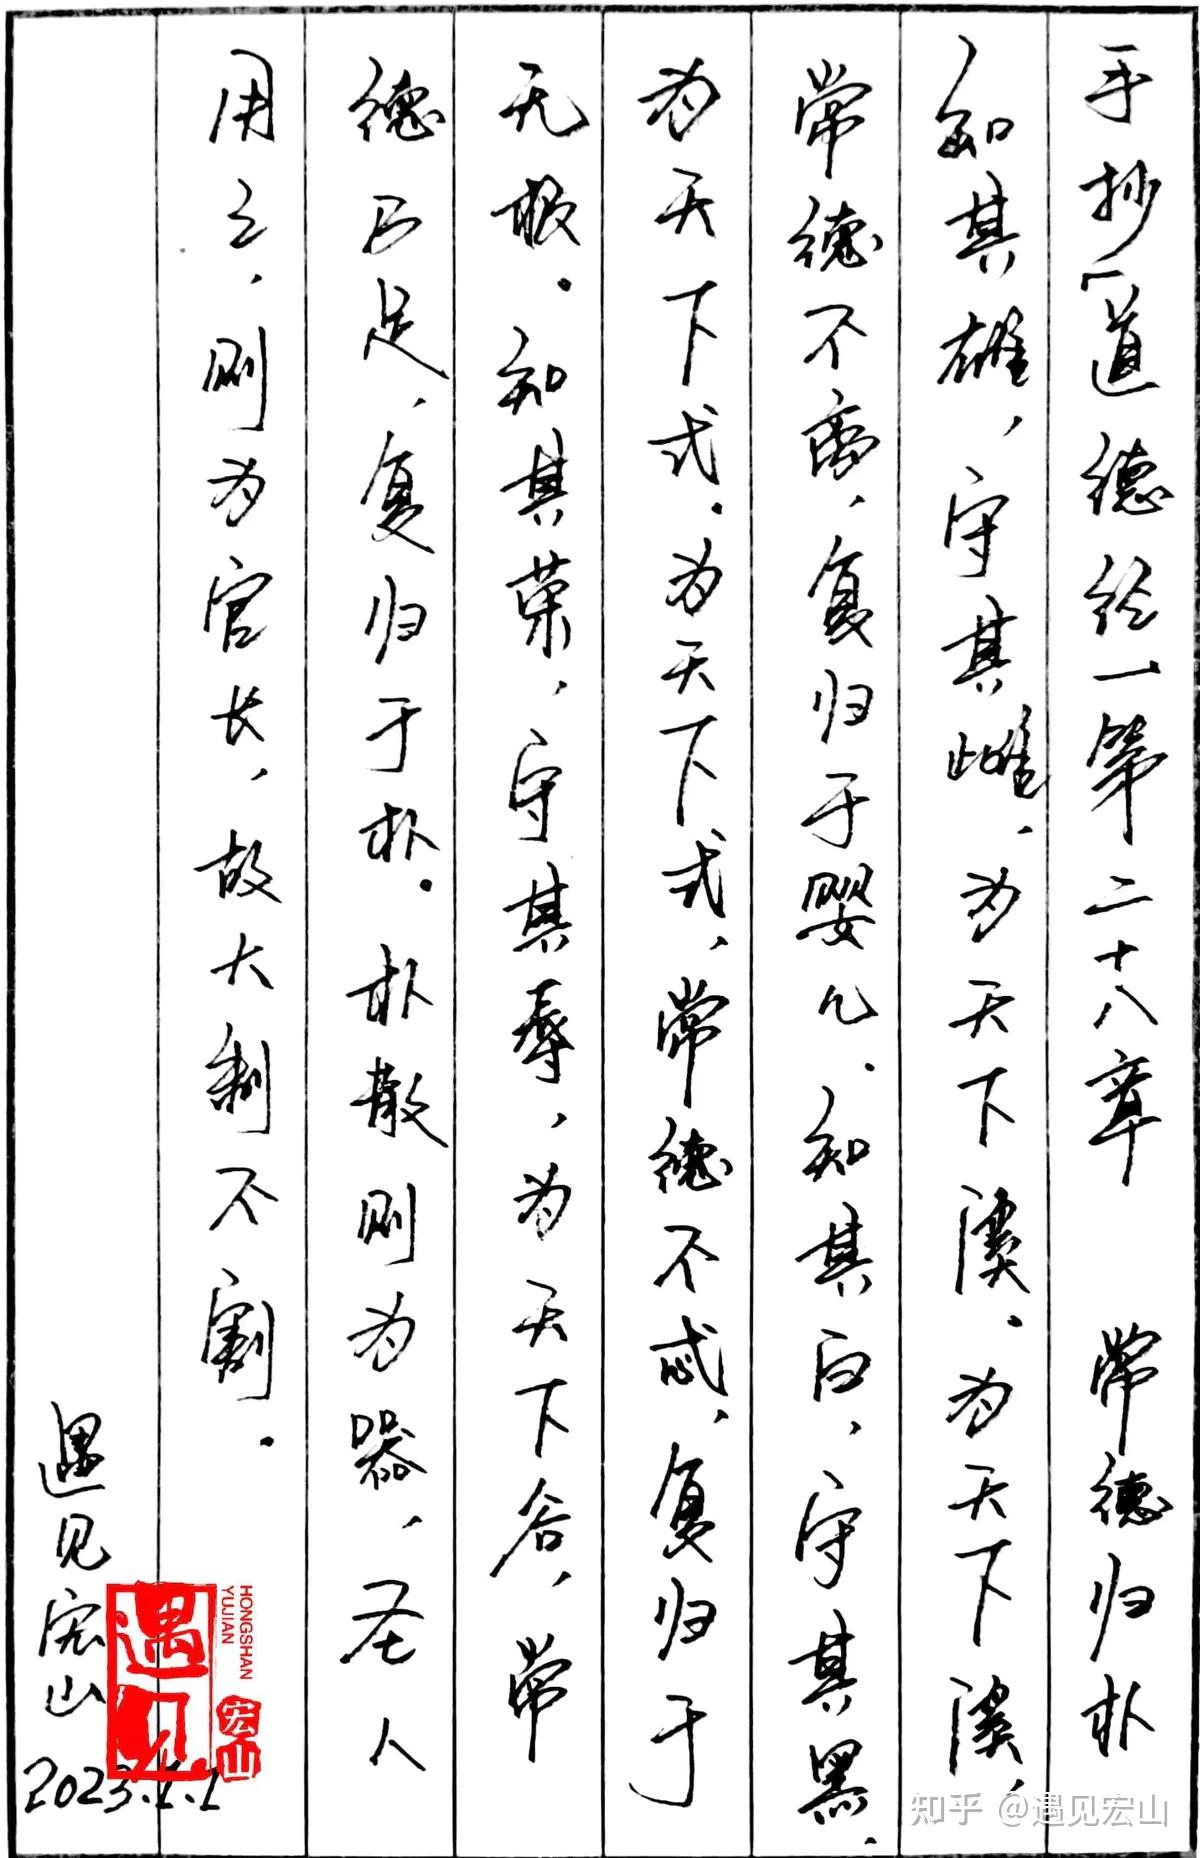 手抄「道德经一第二十八章 常德归朴
知其雄，守其雌，为天下溪。为天下溪，
常德不离，复归于婴儿。知其白，守其黑，
为天下式。为天下式，常德不忒，复归于
无极。知其荣，守其辱，为天下谷，常
德乃足，复归于朴。朴散则为器，圣人
用之，则为官长，故大制不割。
遇见宏山
2023.1.1
遇见
HONGSHAN
YUJIAN
宏山
知乎 @遇见宏山